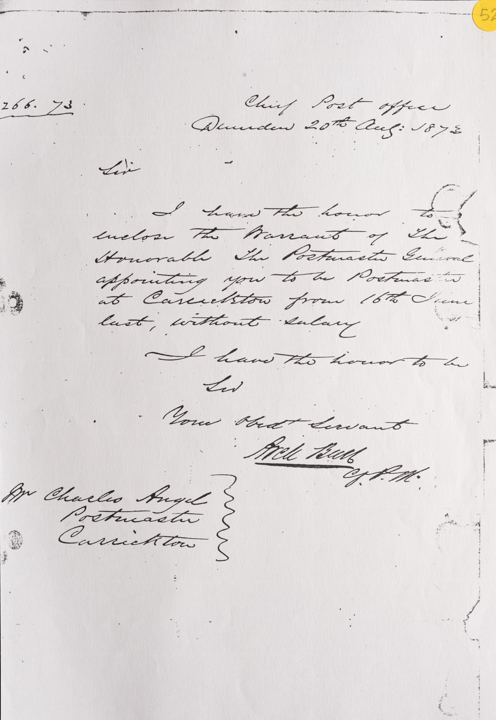 52
266. 73
Chief Post office
Dunedin 20th Aug: 1873
Sir
I have the honor to
enclose the Warrant of The
Honorable The Postmaster General
appointing you to be Postmaster
at Carrickton from 16th June
last, without salary
I have the honor to be
Sir
Your Obedt Servant
Arch Barr
Cf. P. M.
Mr Charles Angel
Postmaster
Carrickton